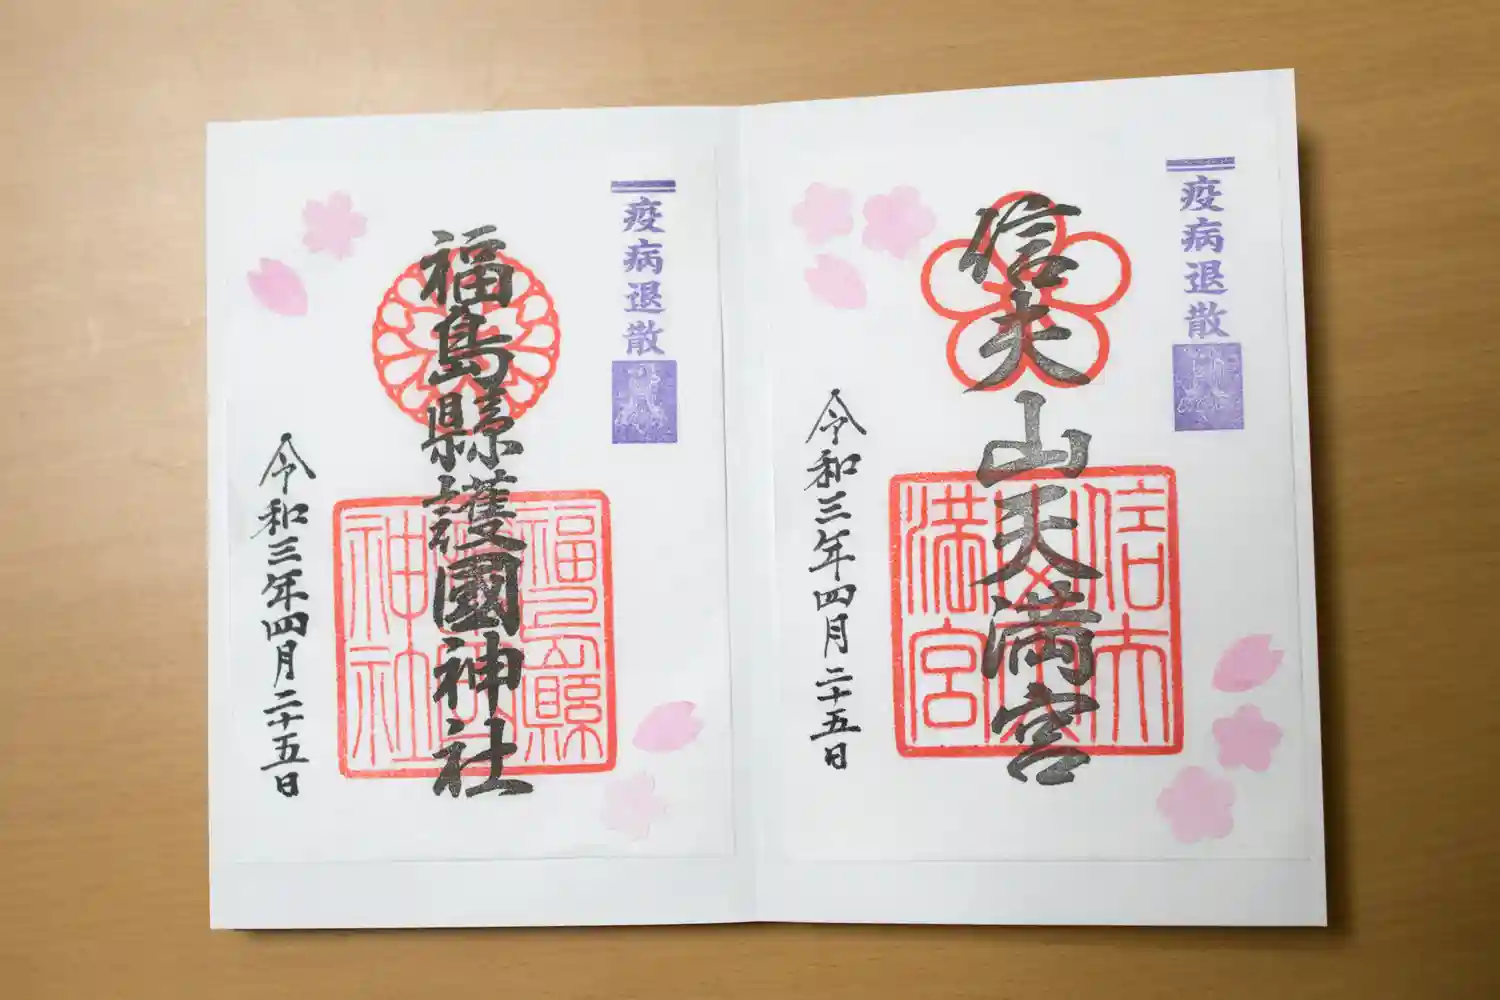 疫病退散
信夫山天満宮
信夫
満宮
令和三年四月二十五日
疫病退散
福島縣護國神社
福島縣
神社
令和三年四月二十五日